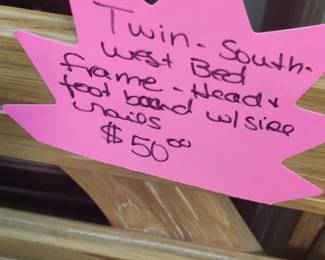 Twin - South-
west Bed
frame - Head &
foot board w/side
rails
$50.00